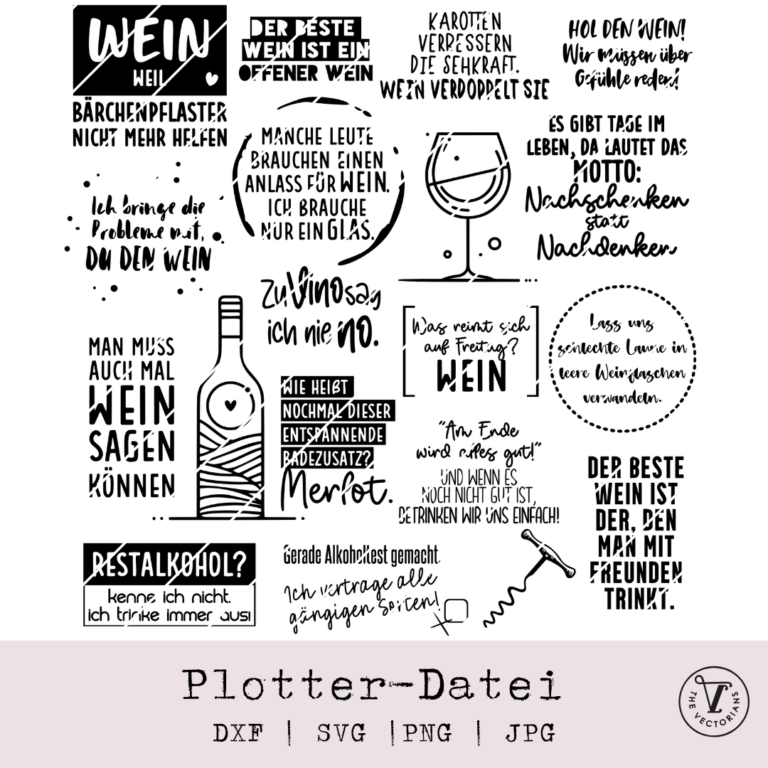 WEIN
WEIL
BÄRCHENPFLASTER
NICHT MEHR HELFEN
DER BESTE
WEIN IST EIN
OFFENER WEIN
KAROTTEN
VERPESSERN
DIE SEHKRAFT.
WEIN VERDOPPELT SIE
HOL DEN WEIN!
Wir müssen über
Gefühle reden!
MANCHE LEUTE
BRAUCHEN EINEN
ANLASS FÜR WEIN.
ICH BRAUCHE
NUR EIN GLAS.
ES GIBT TAGE IM
LEBEN, DA LAUTET DAS
MOTTO:
Nachschenken
statt
Nachdenken
Ich bringe die
Probleme mit,
DU DEN WEIN
Zu Vino say
ich nie no.
MAN MUSS
AUCH MAL
WEIN
SAGEN
KÖNNEN
WIE HEIßT
NOCHMAL DIESER
ENTSPANNENDE
BADEZUSATZ?
Merlot.
Was reimt sich
auf Freitag?
WEIN
Lass uns
schlechte Laune in
leere Weinflaschen
verwandeln.
"Am Ende
wird alles gut!"
UND WENN ES
NOCH NICHT GUT IST,
BETRINKEN WIR UNS EINFACH!
DER BESTE
WEIN IST
DER, DEN
MAN MIT
FREUNDEN
TRINKT.
RESTALKOHOL?
kenne ich nicht.
ich trinke immer aus!
Gerade Alkoholtest gemacht.
Ich vertrage alle
gängigen Sorten!
Plotter-Datei
DXF | SVG |PNG | JPG
THE VECTORIANS